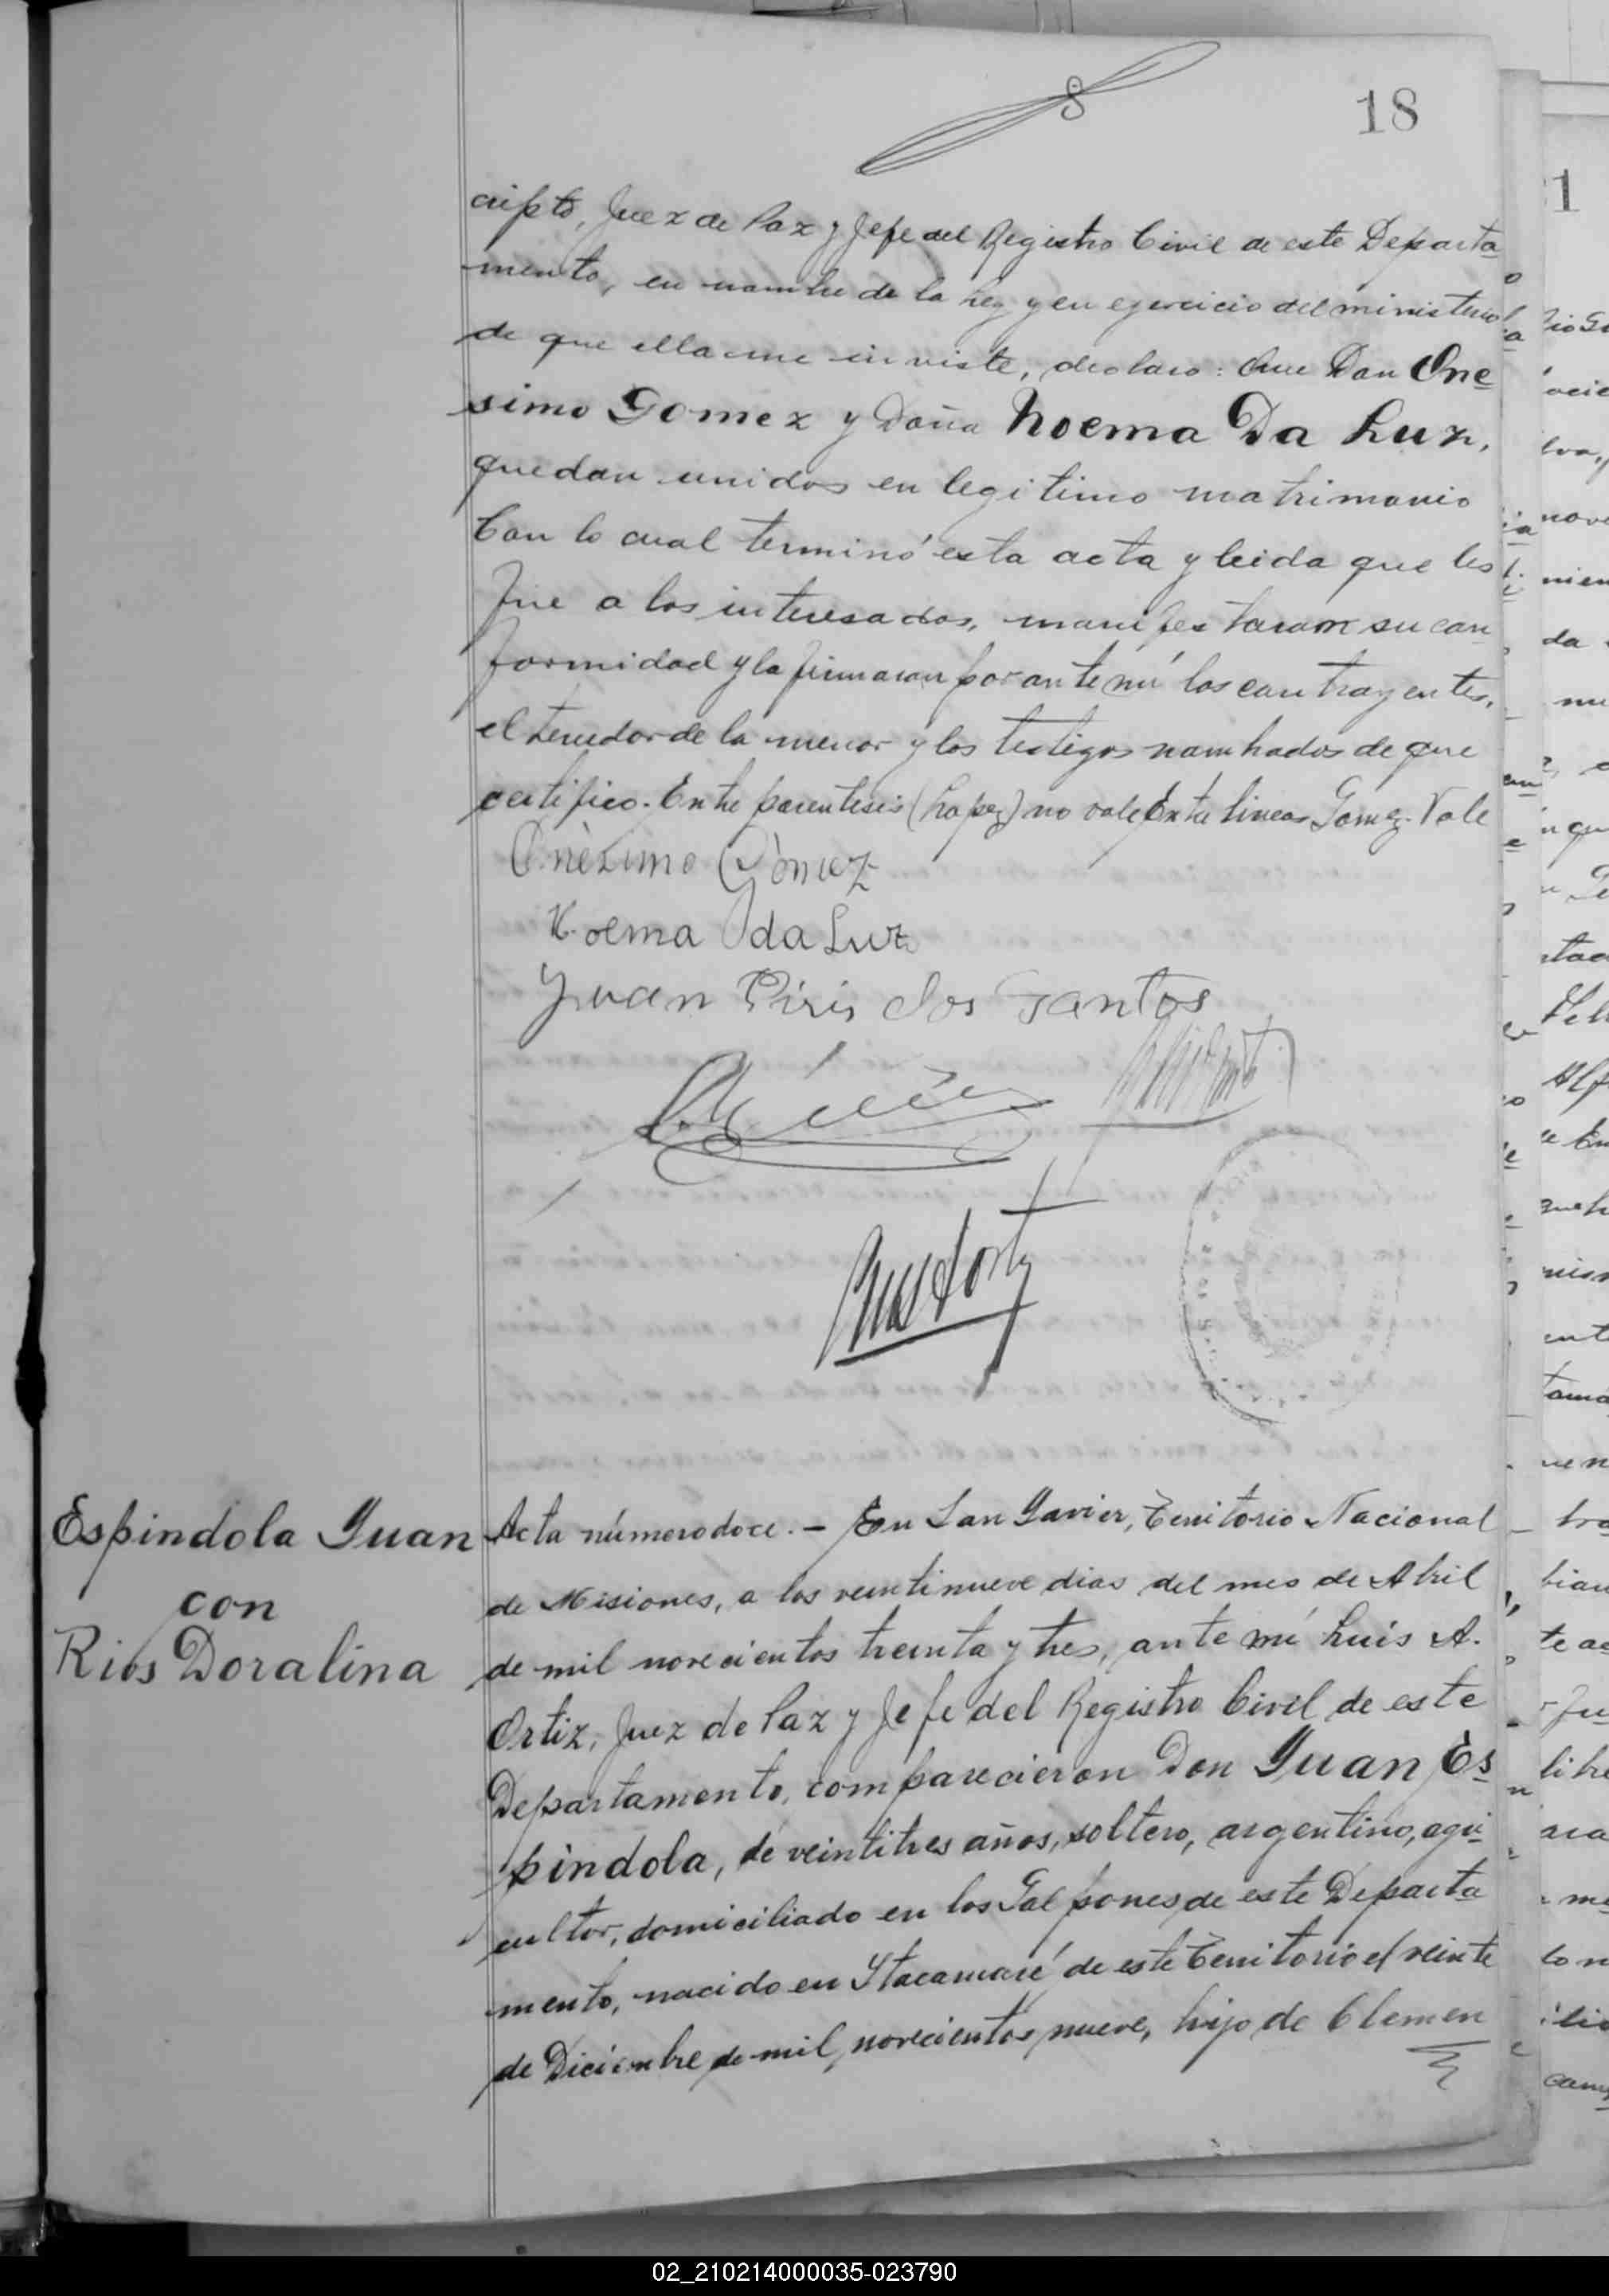 18
cripto, Juez de Paz y Jefe del Registro Civil de este Departa
mento, en nombre de la Ley y en ejercicio del ministerio
de que ella me inviste, declaro: Que Don One
simo Gomez y Doña Noema Da Luz,
quedan unidos en legitimo matrimonio
Con lo cual terminó esta acta y leida que les
fue a los interesados, manifestaron su con
formidad y la firmaron por ante mí los contrayentes,
el tenedor de la menor y los testigos nombrados de que
certifico. Entre parentesis (Lopez) no vale Entre lineas Gomez. Vale
Onèsimo Gòmez
Noema da Luz
Juan Piris dos Santos
Espindola Juan
con
Rios Doralina
Acta número doce. – En San Javier, Territorio Nacional
de Misiones, a los veintinueve dias del mes de Abril
de mil novecientos treinta y tres, ante mí Luis A.
Ortiz, Juez de Paz y Jefe del Registro Civil de este
Departamento, comparecieron Don Juan Es
pindola, de veintitres años, soltero, argentino, agri
cultor, domiciliado en los Galpones, de este Departa
mento, nacido en Itacaruaré de este Territorio el veinte
de Diciembre de mil novecientos nueve, hijo de Clemen
02_210214000035-023790